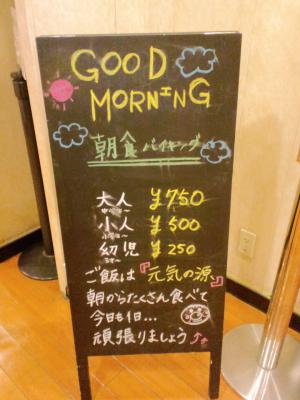 GOOD
MORNING
朝食バイキング
大人 ¥750
小人 ¥500
幼児 ¥250
ご飯は『元気の源』
朝からたくさん食べて
今日も1日...
頑張りましょう